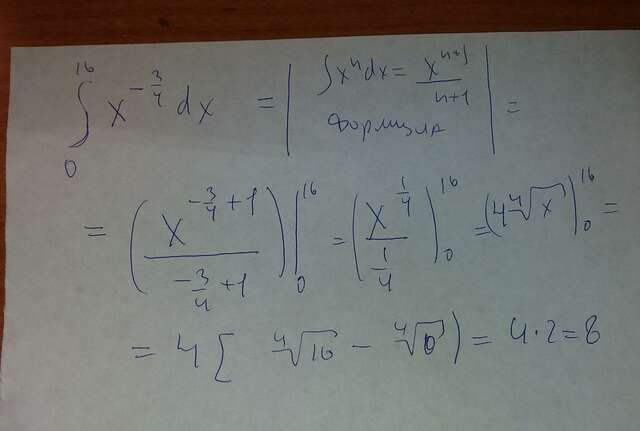 ∫₀¹⁶ x^(-3/4) dx = | ∫xⁿdx = x^(n+1)/(n+1) формула | =
= (x^(-3/4+1)/(-3/4+1))|₀¹⁶ = (x^(1/4)/(1/4))|₀¹⁶ = (4 ⁴√x)|₀¹⁶ =
= 4[ ⁴√16 - ⁴√0 ) = 4·2=8